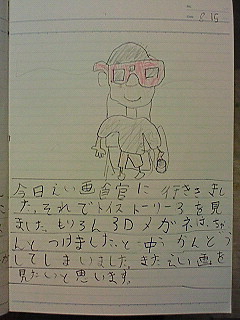 8.15
今日えい画官に行きまし
た。それでトイストーリー3を見
ました。もちろん3Dメガネは、ちゃ
んとつけました。と中うかんどう
してしまいました。またえい画を
見たいと思います。